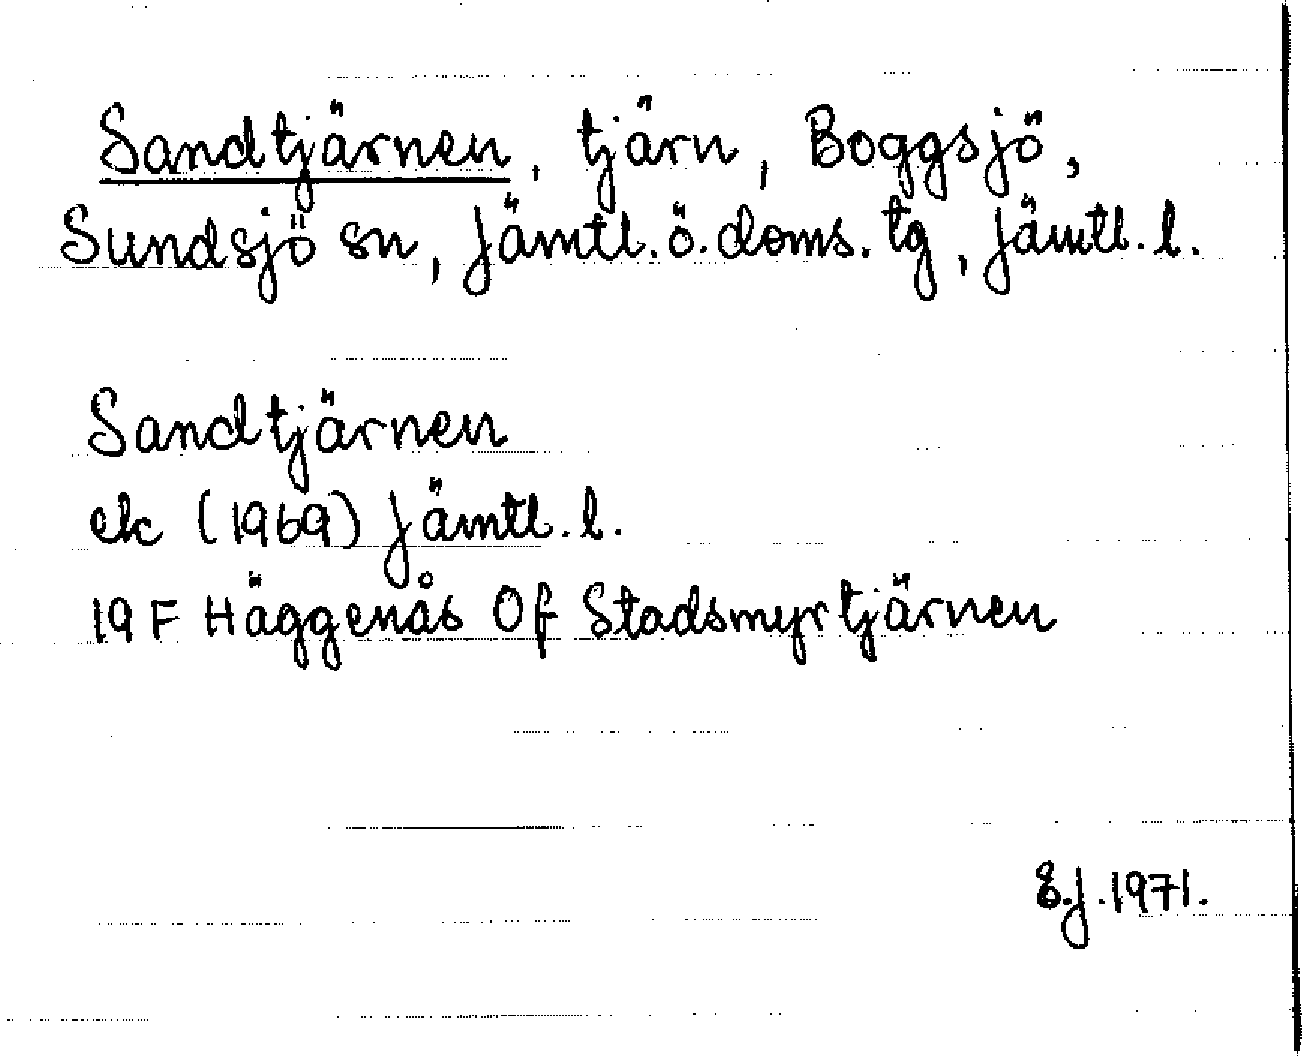 Sandtjärnen, tjärn, Boggsjö,
Sundsjö sn, Jämtl. ö. doms. tg, Jämtl. l.
Sandtjärnen
ek (1969) Jämtl. l.
19 F Häggenås Of Stadsmyrtjärnen
E.J. 1971.